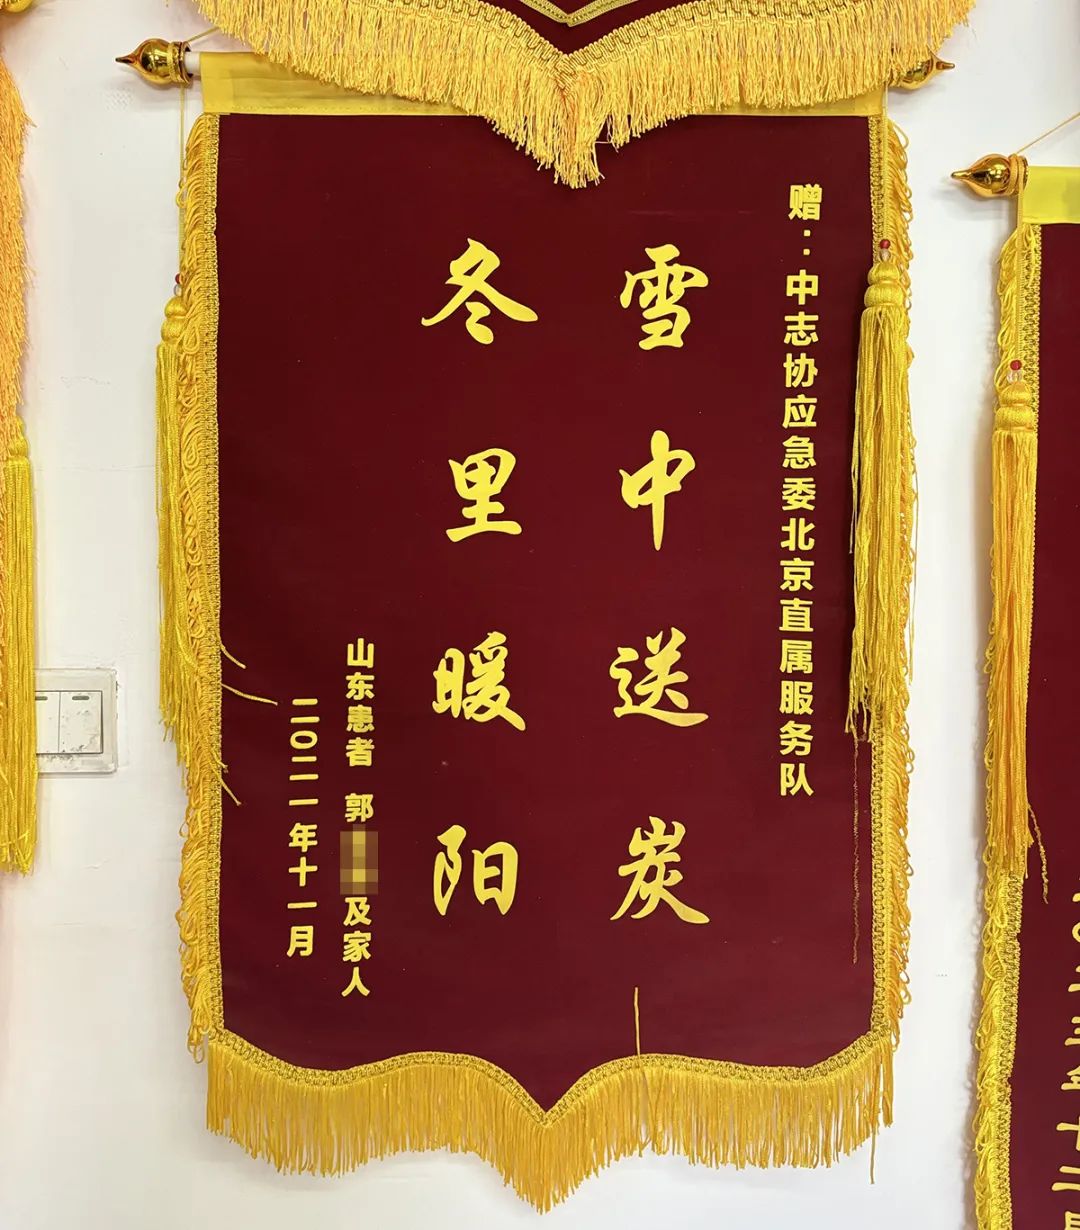 赠：中志协应急委北京直属服务队
雪中送炭
冬里暖阳
山东患者 郭
及家人
二〇二一年十一月